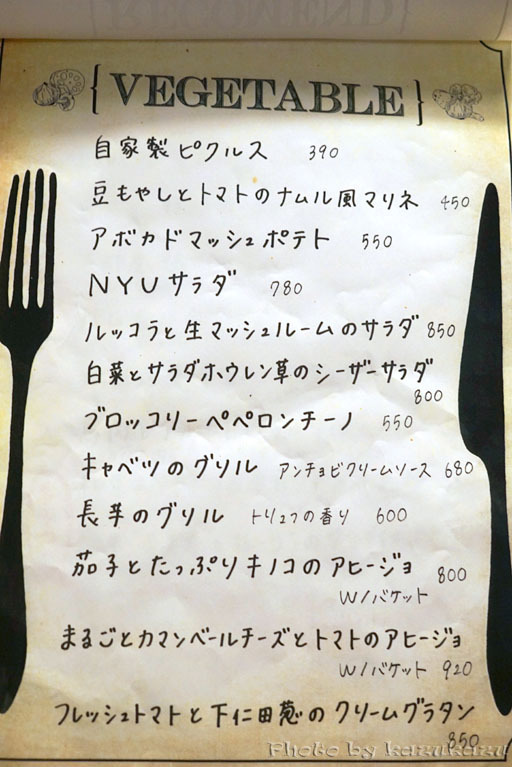 { VEGETABLE }
自家製ピクルス 390
豆もやしとトマトのナムル風マリネ 450
アボカドマッシュポテト 550
NYUサラダ 780
ルッコラと生マッシュルームのサラダ 850
白菜とサラダホウレン草のシーザーサラダ
800
ブロッコリーペペロンチーノ 550
キャベツのグリル アンチョビクリームソース 680
長芋のグリル トリュフの香り 600
茄子とたっぷりキノコのアヒージョ 800
W/バケット
まるごとカマンベールチーズとトマトのアヒージョ
W/バケット 920
フレッシュトマトと下仁田葱のクリームグラタン
850
Photo by kazukazu